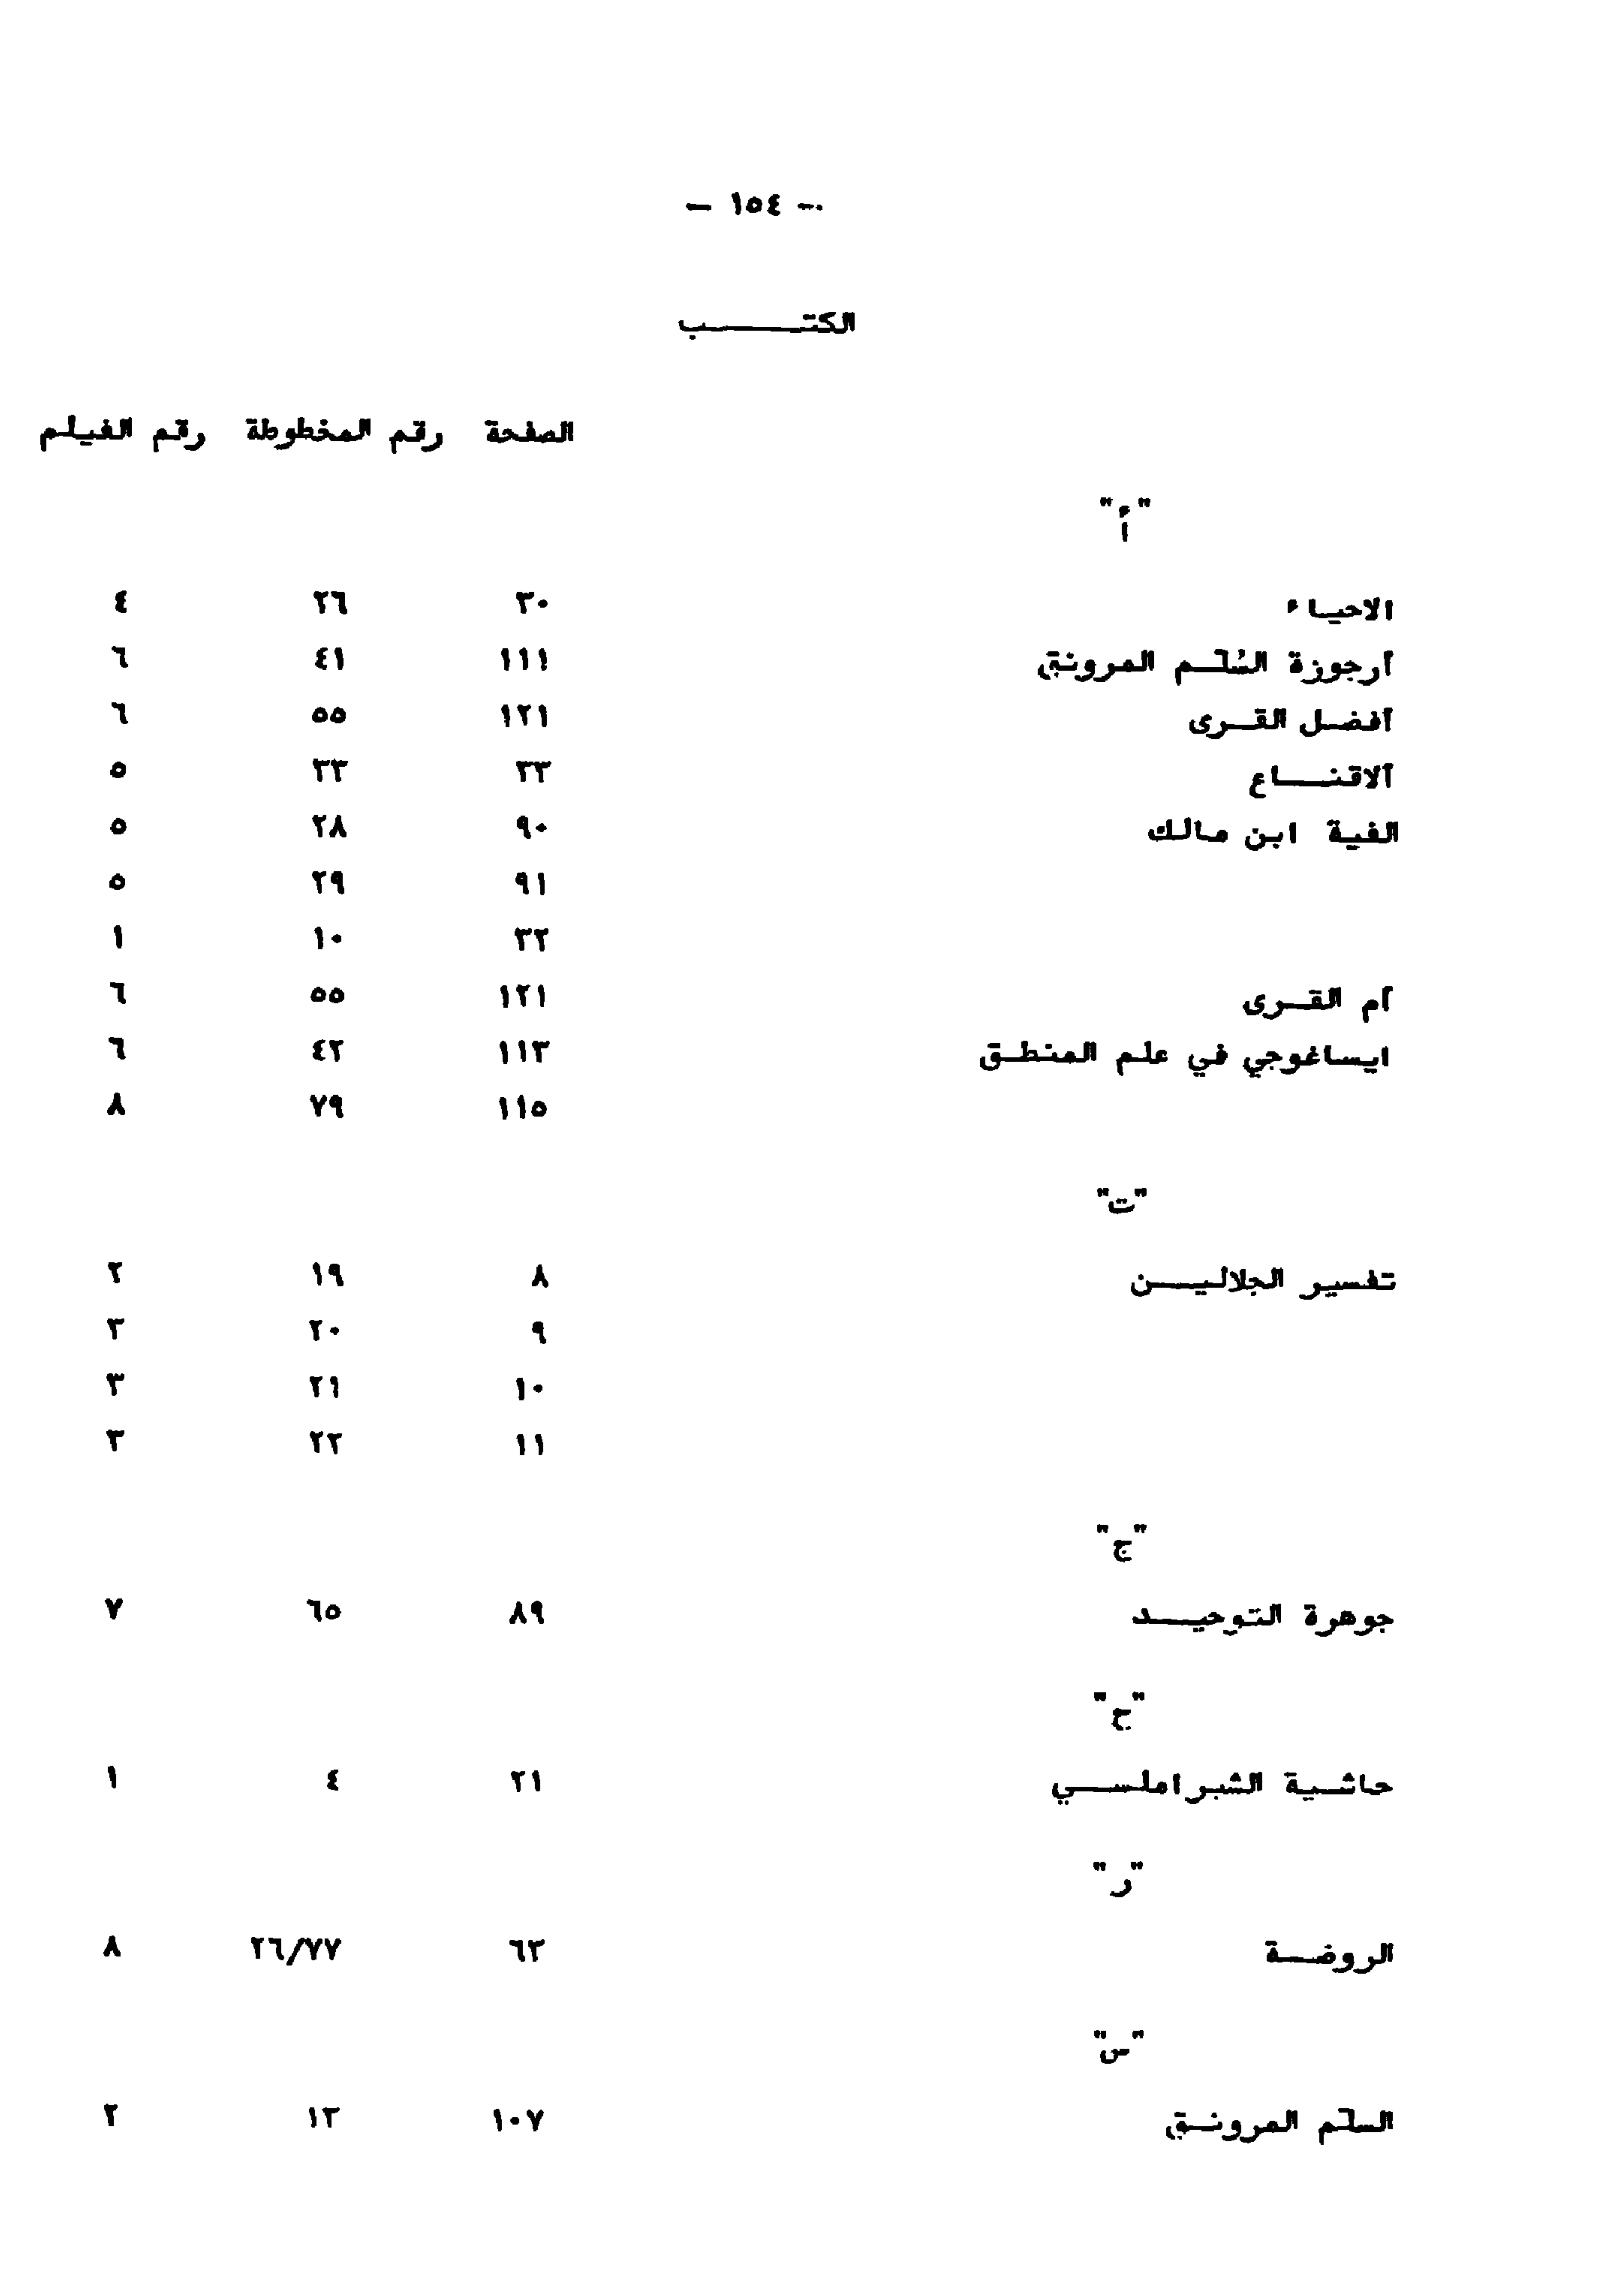 - ١٥٤ -
الكتـــــب
الصفحة رقم المخطوطة رقم الفيلم
"أ"
الاحياء ٣٠ ٢٦ ٤
أرجوزة السُلّم المرونق ١١١ ٤١ ٦
أفضل القرى ١٢١ ٥٥ ٦
ألاقنــاع ٣٣ ٣٣ ٥
الفية ابن مالك ٩٠ ٢٨ ٥
٩١ ٢٩ ٥
٣٢ ١٠ ١
أم القرى ١٢١ ٥٥ ٦
ايساغوجي في علم المنطق ١١٣ ٤٢ ٦
١١٥ ٧٩ ٨
"ت"
تفسير الجلاليـن ٨ ١٩ ٢
٩ ٢٠ ٣
١٠ ٢١ ٣
١١ ٢٢ ٣
"ج"
جوهرة التوحيـد ٨٩ ٦٥ ٧
"ح"
حاشية الشبراملسـي ٢١ ٤ ١
"ر"
الروضـة ٦٣ ٢٦/٧٧ ٨
"س"
السلّم المرونـق ١٠٧ ١٣ ٢